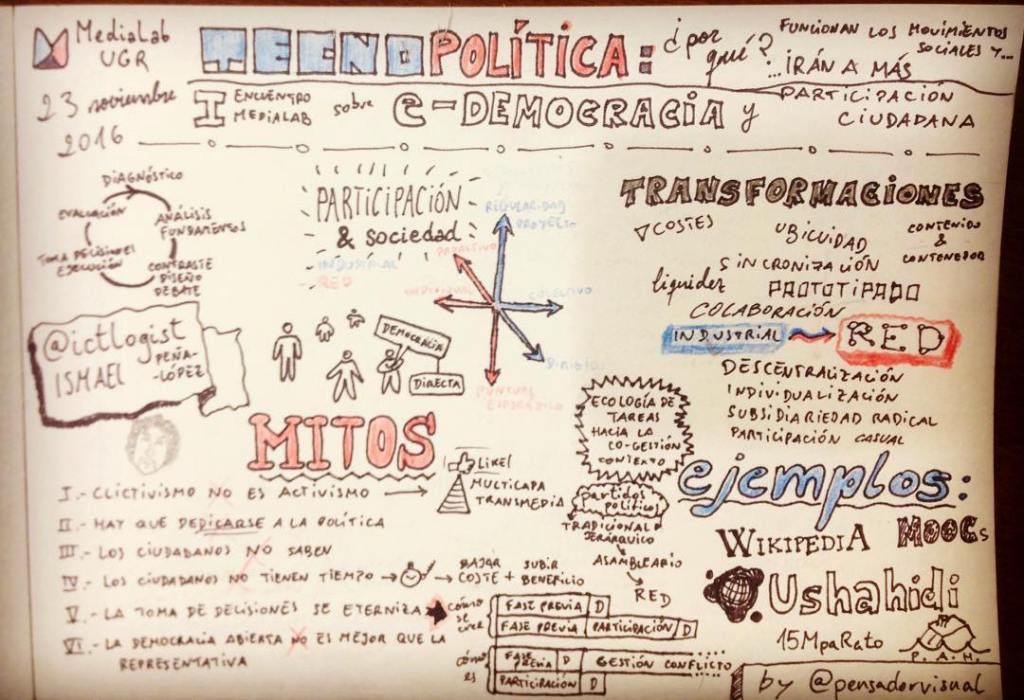 MediaLab
UGR
23 noviembre
2016
TECNOPOLÍTICA:
¿por
qué?
FUNCIONAN LOS MOVIMIENTOS
SOCIALES Y...
...IRÁN A MÁS
I ENCUENTRO
MEDIALAB
sobre
e-DEMOCRACIA y
PARTICIPACIÓN
CIUDADANA
DIAGNÓSTICO
EVALUACIÓN
ANÁLISIS
FUNDAMENTOS
TOMA DECISIONES
EJECUCIÓN
CONTRASTE
DISEÑO
DEBATE
@ictlogist
ISMAEL
PEÑA-
-LÓPEZ
PARTICIPACIÓN
& sociedad:
INDUSTRIAL
RED
REGULARIDAD
PROYECTO
PROACTIVO
INDIVIDUAL
COLECTIVO
DIRIGIDO
PUNTUAL
ESPORÁDICO
DEMOCRACIA
DIRECTA
TRANSFORMACIONES
▽COSTES
UBICUIDAD
CONTENIDO
&
CONTENEDOR
SINCRONIZACIÓN
liquidez
PROTOTIPADO
COLABORACIÓN
INDUSTRIAL
RED
DESCENTRALIZACIÓN
INDIVIDUALIZACIÓN
SUBSIDIARIEDAD RADICAL
PARTICIPACIÓN CASUAL
MITOS
I.- CLICTIVISMO NO ES ACTIVISMO
LIKE!
MULTICAPA
TRANSMEDIA
II.- HAY QUE DEDICARSE A LA POLÍTICA
III.- LOS CIUDADANOS NO SABEN
IV.- LOS CIUDADANOS NO TIENEN TIEMPO
BAJAR
COSTE
+
SUBIR
BENEFICIO
V.- LA TOMA DE DECISIONES SE ETERNIZA
CÓMO
SE
CREE
FASE PREVIA D
FASE PREVIA PARTICIPACIÓN D
VI.- LA DEMOCRACIA ABIERTA NO ES MEJOR QUE LA
REPRESENTATIVA
CÓMO
ES
FASE
PREVIA D GESTIÓN CONFLICTO
PARTICIPACIÓN D
ECOLOGÍA DE
TAREAS
HACIA LA
CO-GESTIÓN
CONTEXTO
partidos
políticos
TRADICIONAL
JERÁRQUICO
ASAMBLEARIO
RED
ejemplos:
WIKIPEDIA
MOOCs
Ushahidi
15MpaRato
P.A.H.
by @pensadorvisual